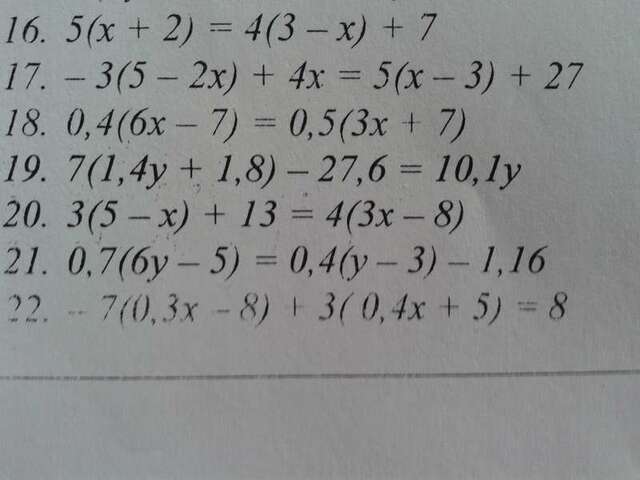 16. 5(x + 2) = 4(3 – x) + 7
17. – 3(5 – 2x) + 4x = 5(x – 3) + 27
18. 0,4(6x – 7) = 0,5(3x + 7)
19. 7(1,4y + 1,8) – 27,6 = 10,1y
20. 3(5 – x) + 13 = 4(3x – 8)
21. 0,7(6y – 5) = 0,4(y – 3) – 1,16
22. – 7(0,3x – 8) + 3( 0,4x + 5) = 8